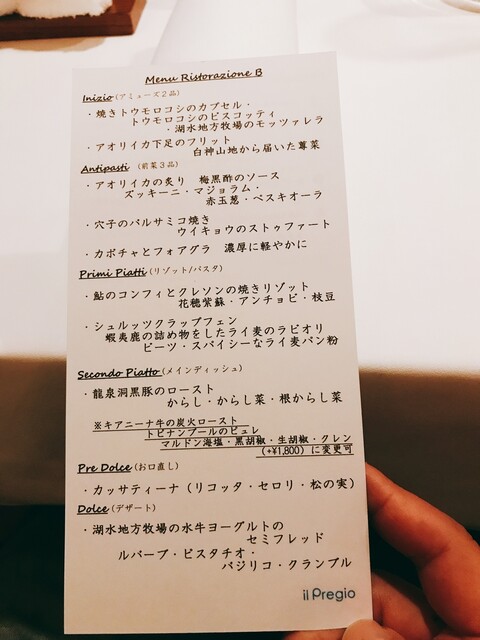 Menu Ristorazione B
Inizio (アミューズ2品)
・焼きトウモロコシのカプセル・
トウモロコシのビスコッティ
・湖水地方牧場のモッツァレラ
・アオリイカ下足のフリット
白神山地から届いた蓴菜
Antipasti (前菜3品)
・アオリイカの炙り 梅黒酢のソース
ズッキーニ・マジョラム・
赤玉葱・ペスキオーラ
・穴子のバルサミコ焼き
ウイキョウのストゥファート
・カボチャとフォアグラ 濃厚に軽やかに
Primi Piatti (リゾット/パスタ)
・鮎のコンフィとクレソンの焼きリゾット
花穂紫蘇・アンチョビ・枝豆
・シュルッツクラップフェン
蝦夷鹿の詰め物をしたライ麦のラビオリ
ビーツ・スパイシーなライ麦パン粉
Secondo Piatto (メインディッシュ)
・龍泉洞黒豚のロースト
からし・からし菜・根からし菜
※キアニーナ牛の炭火ロースト
トピナンブールのピュレ
マルドン海塩・黒胡椒・生胡椒・クレン
(+¥1,800) に変更可
Pre Dolce (お口直し)
・カッサティーナ (リコッタ・セロリ・松の実)
Dolce (デザート)
・湖水地方牧場の水牛ヨーグルトの
セミフレッド
ルバーブ・ピスタチオ・
バジリコ・クランブル
il Pregio